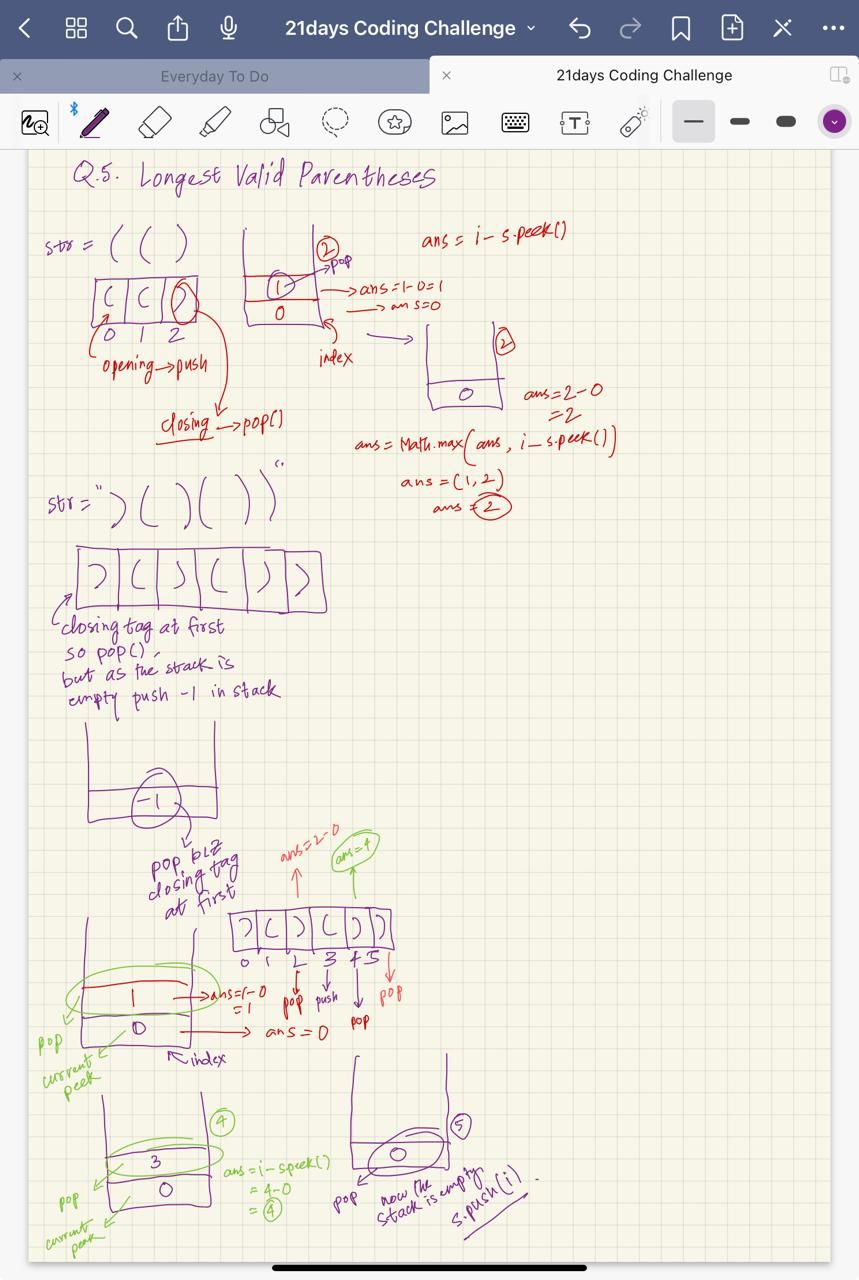 21days Coding Challenge
Everyday To Do
21days Coding Challenge
Q.5. Longest Valid Parentheses
str = ( ( )
( ( )
0 1 2
opening → push
closing → pop()
2
pop
1 → ans=1-0=1
0 → ans=0
index
ans = i - s.peek()
2
0
ans=2-0
=2
ans = Math.max(ans, i - s.peek())
ans = (1, 2)
ans = 2
str = ") ( ) ( ) )"
) ( ) ( ) )
closing tag at first
so pop(),
but as the stack is
empty push -1 in stack
-1
pop bcz
closing tag
at first
ans=2-0
ans=4
) ( ) ( ) )
0 1 2 3 4 5
pop push pop pop
1 → ans=1-0
=1
0 → ans=0
pop
current
peek
index
4
3
0
pop
current
peak
ans = i - speek()
= 4-0
= 4
5
0
pop
now the
stack is empty
s.push(i)